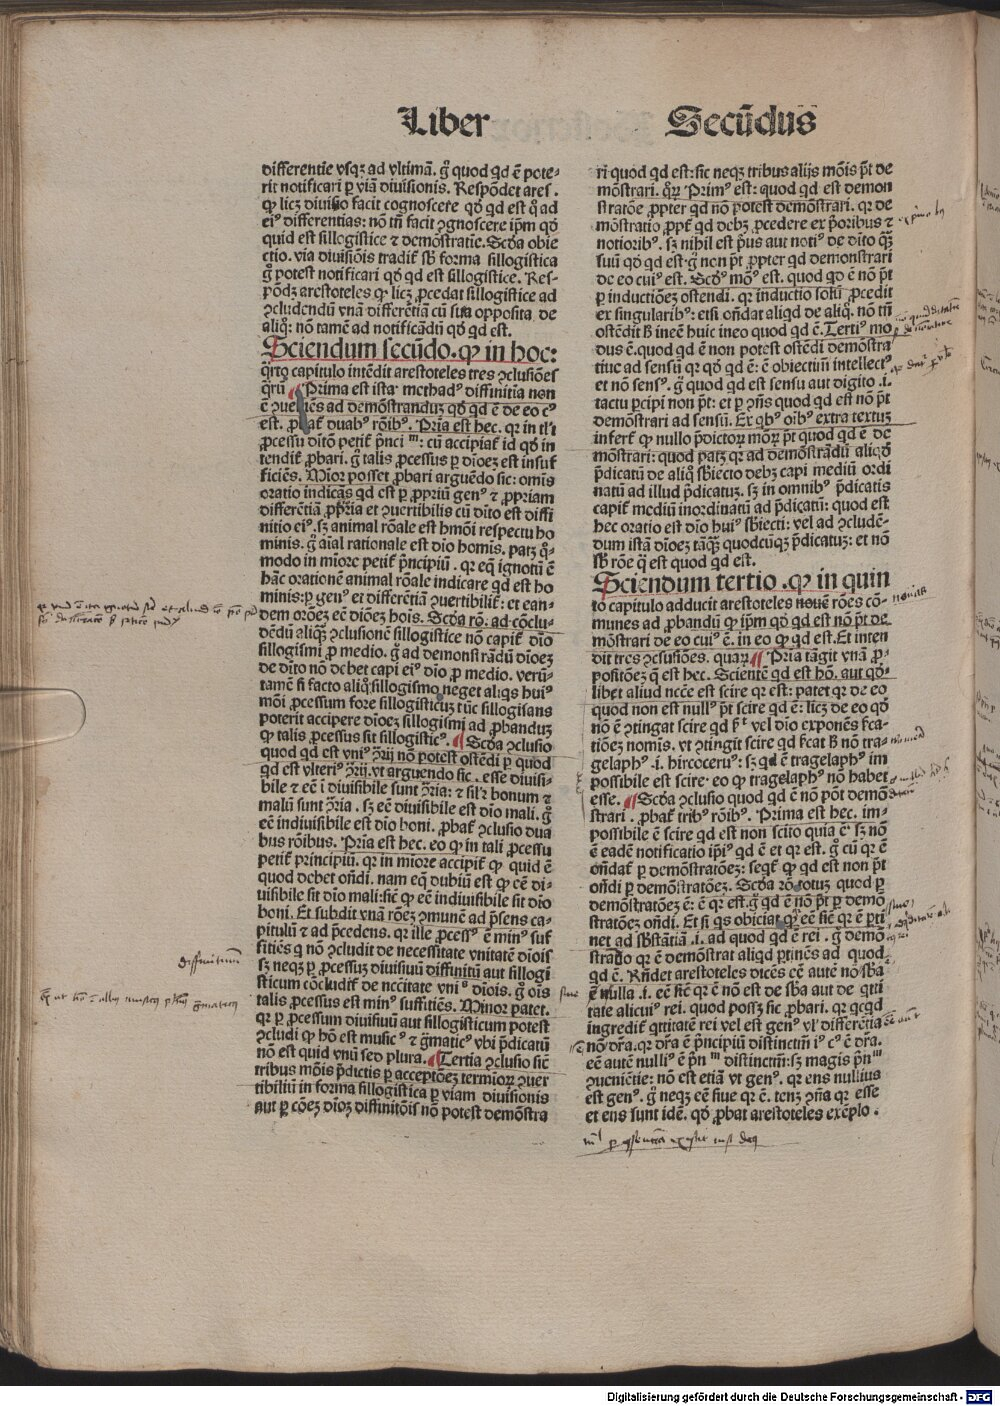 Liber Secūdus
differentie vsqꝫ ad vltimā. gͦ quod qd ē pote-
rit notificari ꝑ viā diuisionis. Respōdet ares.
ꝙ licꝫ diuisio facit cognoscere qđ qd est qͣ ad
eiꝰ differentias: nō tn̄ facit ꝯgnoscere ip̄m qđ
quid est sillogistice ⁊ demōstratie. Scđa obie
ctio. via diuisiōis tradit sƀ forma sillogistica
gͦ potest notificari qđ qd est sillogistice. Res-
pōdꝫ arestoteles ꝙ licꝫ ꝓcedat sillogistice ad
ꝯcludendū vnā differētiā cū sua opposita de
aliqͦ: nō tamē ad notificādū qđ qd est.
Sciendum secūdo. ꝙ in hoc:
qͣrto capitulo intēdit arestoteles tres ꝯclusiōes
qͣrū Prima est ista methadꝰ diffinitia non
ē ꝯueniēs ad demōstranduꝫ qđ qd ē de eo cꝰ
est. ꝓbat duabꝰ rōibꝰ. Prīa est hec. qꝛ in tl'i
ꝓcessu dītō petit p̄nci ᵐ: cū accipiat id qđ in
tendit ꝓbari. gͦ talis ꝓcessus ꝑ dīoeꝫ est insuf
ficiēs. Mīor posset ꝓbari arguēdo sic: omīs
oratio indicās qd est ꝑ ꝓpriū genꝰ ⁊ ꝓpriam
differētiā ꝓpria et ꝯuertibilis cū dīto est diffi
nitio eiꝰ. sꝫ animal rōale est hmōi respectu ho
minis. gͦ aīal rationale est dīo homīs. patꝫ qͦ-
modo in mīore petit p̄ncipiū. qꝛ eqͣ ignotū ē
hāc orationē animal rōale indicare qd est ho
minis: ꝑ genꝰ et differētiā ꝯuertibilit: et ean-
dem orōeꝫ eē dīōeꝫ hoīs. Scđa rō. ad cōclu-
dēdū aliqͣꝫ ꝯclusionē sillogistice nō capit dīo
sillogismi ꝓ medio. gͦ ad demonstrādū dīoeꝫ
de dīto nō debet capi eiꝰ dīo ꝓ medio. verū-
tamē si facto aliqͦ sillogismo neget aliqs huiꝰ
mōi ꝓcessum fore sillogisticuꝫ tūc sillogisans
poterit accipere dīoeꝫ sillogismi ad ꝓbanduꝫ
ꝙ talis ꝓcessus sit sillogisticꝰ. Scđa ꝯclusio
quod qd est vniꝰ ꝯrij nō potest ostēdi ꝑ quod
qd est vlteriꝰ ꝯrij. vt arguendo sic. esse diuisi-
bile ⁊ eē ī diuisibile sunt ꝯria: ⁊ sil'r bonum ⁊
malū sunt ꝯria. sꝫ eē diuisibile est dīo mali. gͦ
eē indiuisibile est dīo boni. ꝓbat ꝯclusio dua
bus rōibus. Prīa est hec. eo ꝙ in tali ꝓcessu
petit principiū. qꝛ in mīore accipit ꝙ quid ē
quod debet oñdi. nam eqͣ dubiū est ꝙ eē di-
uisibile sit dīo mali: sic ꝙ eē indiuisibile sit dīo
boni. Et subdit vnā rōeꝫ ꝯmunē ad p̄sens ca-
pitulū ⁊ ad p̄cedens. qꝛ ille ꝓcessꝰ ē minꝰ suf
fitiēs q nō ꝯcludit de necessitate vnitatē dīois
sꝫ neqꝫ ꝑ ꝓcessuꝫ diuisiuū diffinitiū aut sillogi
sticum cōcludit de nccitate vniꝰ dīois. gͦ oīs
talis ꝓcessus est minꝰ suffitiēs. Minor patet.
qꝛ ꝑ ꝓcessum diuisiuū aut sillogisticum potest
ꝯcludi ꝙ hō est musicꝰ ⁊ gͣmaticꝰ vbi p̄dicatū
nō est quid vnū sed plura. Tertia ꝯclusio sic
tribus mōis p̄dictis ꝑ acceptōeꝫ termīoꝝ ꝯuer
tibiliū in forma sillogistica ꝑ viam diuisionis
aut ꝑ cōeꝫ dīoꝫ diffinitōis nō potest demōstra
ri quod qd est: sic neqꝫ tribus alijs mōis p̄t de
mōstrari. qͣꝝ Primꝰ est: quod qd est demon
stratōe ꝓpter qd nō potest demōstrari. qꝛ de
mōstratio ꝓpt qd debꝫ ꝓcedere ex p̄oribus ⁊
notioribꝰ. sꝫ nihil est p̄us aut notiꝰ de dīto qͣꝫ
suū qđ qd est. gͦ non p̄t ꝓpter qd demonstrari
de eo cuiꝰ est. Scđꝰ mōꝰ est. quod qd ē nō p̄t
ꝑ inductiōeꝫ ostendi. qꝛ inductio solū ꝓcedit
ex singularibꝰ: etsi oñdat aliqd de aliqͦ. nō tn̄
ostēdit ƀ ineē huic ineo quod qd ē. Tertiꝰ mo
dus ē. quod qd ē non potest ostēdi demōstra
tiue ad sensū qꝛ qđ qd ē: ē obiectiū intellectꝰ
et nō sensꝰ. gͦ quod qd est sensu aut digito .i.
tactu ꝑcipi non p̄t: et ꝑ ꝯñs quod qd est nō p̄t
demōstrari ad sensū. Ex qbꝰ oībꝰ extra textuꝫ
infert ꝙ nullo p̄dictoꝝ mōꝝ p̄t quod qd ē de
mōstrari: quod patꝫ qꝛ ad demōstrādū aliqđ
p̄dicatū de aliqͦ sƀiecto debꝫ capi mediū ordi
natū ad illud p̄dicatuꝫ. sꝫ in omnibꝰ p̄dicatis
capit mediū inordinatū ad p̄dicatū: quod est
hec oratio est dīo huiꝰ sƀiecti: vel ad ꝯcludē-
dum istā dīoeꝫ tāqͣꝫ quodcūqꝫ p̄dicatuꝫ: et nō
sƀ rōe q̄ est quod qd est.
Sciendum tertio. ꝙ in quin
to capitulo adducit arestoteles nouē rōes cō-
munes ad ꝓbandū ꝙ ip̄m qđ qd est nō p̄t de
mōstrari de eo cuiꝰ ē. in eo ꝙ qd est. Et inten
dit tres ꝯclusiōes. quaꝝ Prīa tāgit vnā ꝓ-
positōeꝫ q̄ est hec. Scientē qd est hō. aut qđ-
libet aliud ncēe est scire qꝛ est: patet qꝛ de eo
quod non est nullꝰ p̄t scire qd ē: licꝫ de eo qđ
nō ē ꝯtingat scire qd ꝭt vel dīo exponēs ꝭca-
tiōeꝫ nomīs. vt ꝯtingit scire qd ꝭcat ƀ nō tra-
gelaphꝰ .i. hircoceruꝰ: sꝫ qd ē tragelaphꝰ im
possibile est scire. eo ꝙ tragelaphꝰ nō habet
esse. Scđa ꝯclusio quod qd ē nō pōt demō
strari. ꝓbat tribꝰ rōibꝰ. Prima est hec. im-
possibile ē scire qd est non scito quia ē sꝫ nō
ē eadē notificatio ip̄iꝰ qd ē et qꝛ est. gͦ cū qꝛ ē
oñdat ꝑ demōstratōeꝫ: seqt ꝙ qd est non p̄t
oñdi ꝑ demōstratōeꝫ. Scđa rō totuꝫ quod ꝑ
demōstratōeꝫ ē: ē qꝛ est. gͦ qd ē nō p̄t ꝑ demō
stratōeꝫ oñdi. Et si qs obiciat qꝛ eē sic qꝛ ē ꝑti
net ad sƀstātiā .i. ad quod qd ē rei. gͦ demō
stratio qꝛ ē demōstrat aliqd ꝑtinēs ad quod
qd ē. Rñdet arestoteles dicēs eē autē nō sƀa
ē nulla .i. eē sic qꝛ ē nō est de sƀa aut de qtti
tate alicuiꝰ rei. quod possꝫ sic ꝓbari. qꝛ qcqd
ingredit qttitatē rei vel est genꝰ vl' differētia
nō dr̄a. qꝛ dr̄a ē p̄ncipiū distinctiū iꝰ cꝰ ē dr̄a.
eē autē nulliꝰ ē p̄n ᵐ distinctm̄: sꝫ magis p̄nᵐ
ꝯueniētie: nō est etiā vt genꝰ. qꝛ ens nullius
est genꝰ. gͦ neqꝫ eē siue qꝛ ē. tenꝫ ꝯña qꝛ esse
et ens sunt idē. qđ ꝓbat arestoteles exēplo.
Digitalisierung gefördert durch die Deutsche Forschungsgemeinschaft - DFG